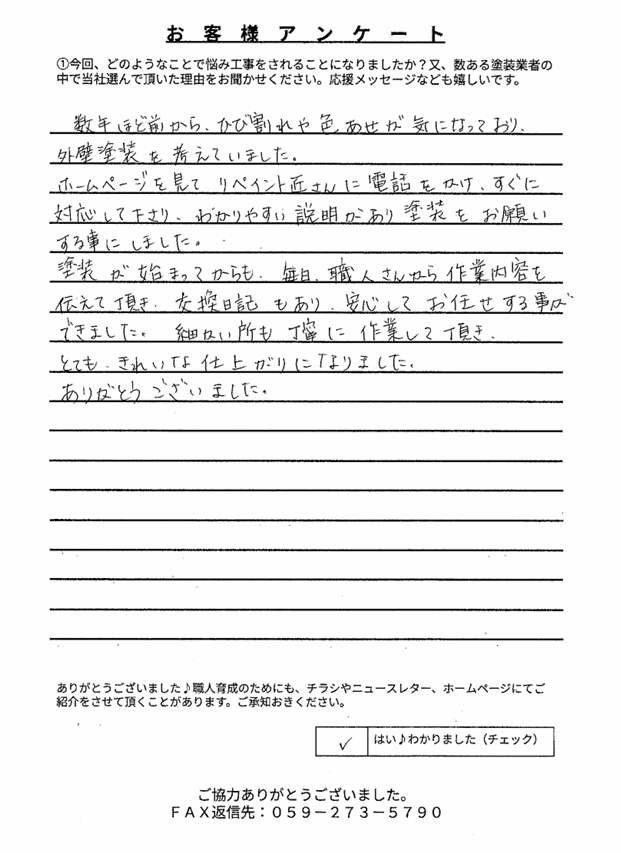 お客様アンケート
①今回、どのようなことで悩み工事をされることになりましたか？又、数ある塗装業者の
中で当社選んで頂いた理由をお聞かせください。応援メッセージなども嬉しいです。
数年ほど前から、ひび割れや色あせが気になっており、
外壁塗装を考えていました。
ホームページを見てリペイント匠さんに電話をかけ、すぐに
対応して下さり、わかりやすい説明があり塗装をお願い
する事にしました。
塗装が始まってからも、毎日、職人さんから作業内容を
伝えて頂き、交換日記もあり、安心してお任せする事が
できました。細かい所も丁寧に作業して頂き、
とても、きれいな仕上がりになりました。
ありがとうございました。
ありがとうございました♪職人育成のためにも、チラシやニュースレター、ホームページにてご
紹介をさせて頂くことがあります。ご承知おきください。
✓ はい♪わかりました（チェック）
ご協力ありがとうございました。
ＦＡＸ返信先：０５９－２７３－５７９０